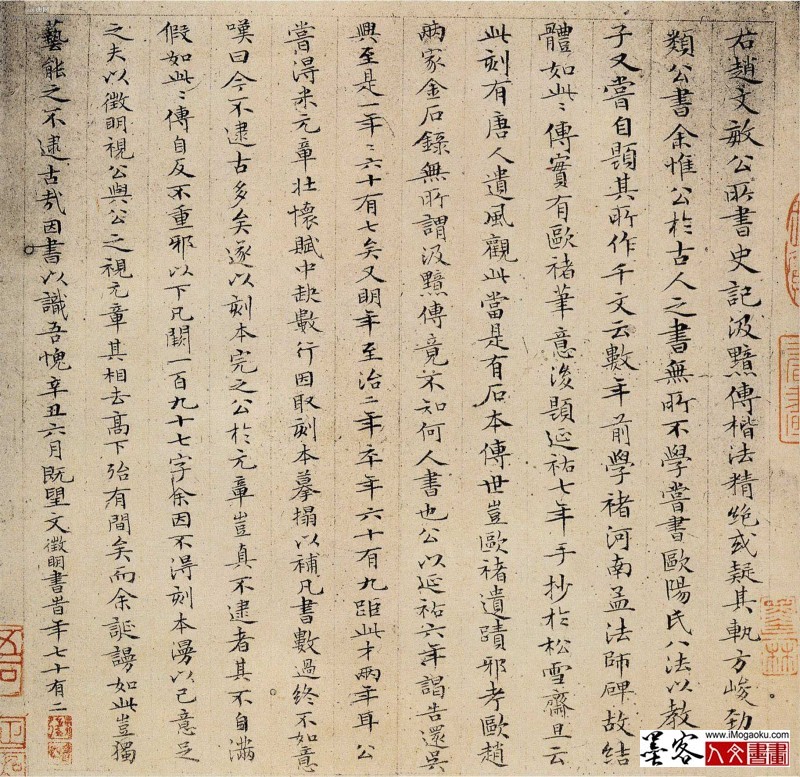 右趙文敏公所書史記汲黯傳楷法精絕或疑其軌方峻勁
類公書余惟公於古人之書無所不學嘗書歐陽氏八法以教
子又嘗自題其所作千文云數年前學褚河南孟法師碑故結
體如此此傳實有歐褚筆意後題延祐七年手抄於松雪齋且云
此刻有唐人遺風觀此當是有石本傳世豈歐褚遺蹟邪考歐趙
兩家金石錄無所謂汲黯傳竟不知何人書也公以延祐六年謁告還吳
興至是一年年六十有七矣又明年至治二年卒年六十有九距此才兩年耳公
嘗得米元章壯懷賦中缺數行因取刻本摹搨以補凡書數過終不如意
嘆曰今不逮古多矣遂以刻本完之公於元章豈真不逮者其不自滿
假如此此傳自反不重邪以下凡闕一百九十七字余因不得刻本漫以己意足
之夫以徵明視公與公之視元章其相去高下殆有間矣而余誕謾如此豈獨
藝能之不逮古哉因書以識吾愧辛丑六月既望文徵明書昔年七十有二
墨客
www.iMogaoku.com
人文書畫